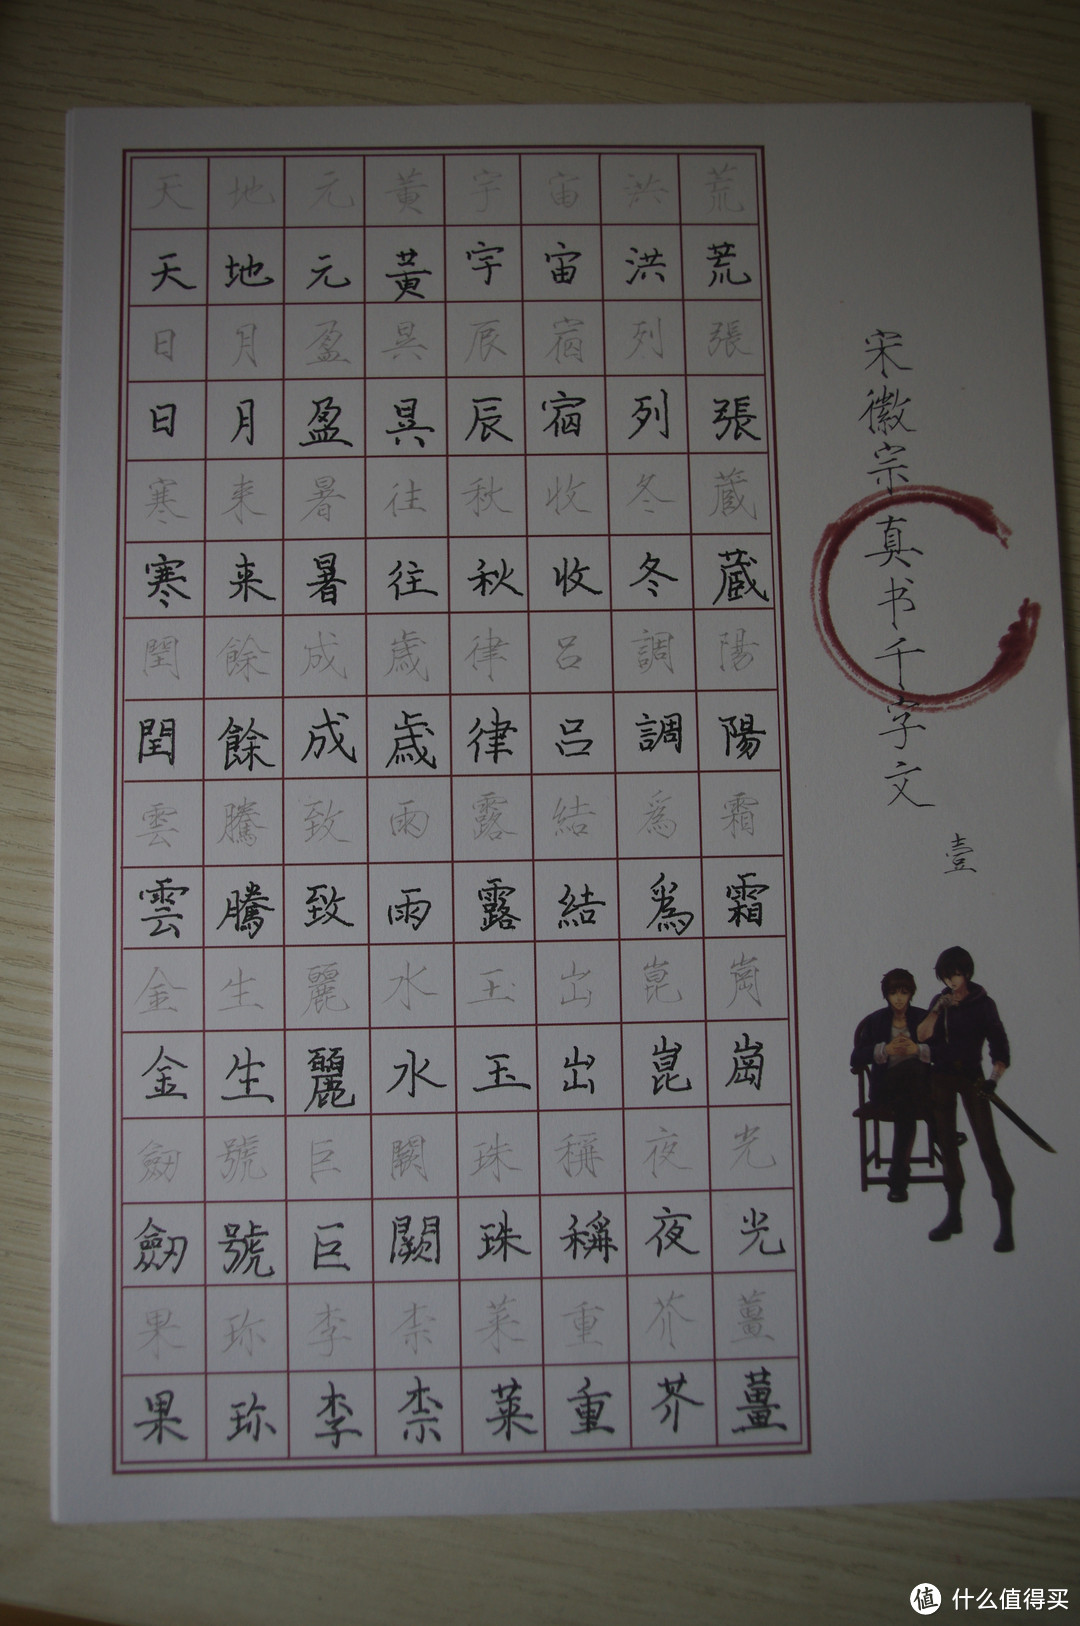 天地元黃宇宙洪荒
天地元黃宇宙洪荒
日月盈昃辰宿列張
日月盈昃辰宿列張
寒来暑往秋收冬蔵
寒来暑往秋收冬蔵
閏餘成歳律吕調陽
閏餘成歳律吕調陽
雲騰致雨露結為霜
雲騰致雨露結為霜
金生麗水玉出崑崗
金生麗水玉出崑崗
劒號巨闕珠稱夜光
劒號巨闕珠稱夜光
果珎李柰菜重芥薑
果珎李柰菜重芥薑
宋徽宗真书千字文
壹
值 什么值得买